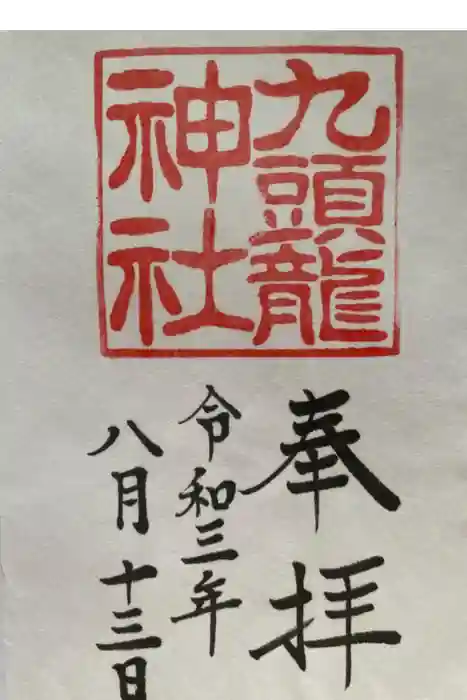 九頭龍
神社
奉拝
令和三年
八月十三日